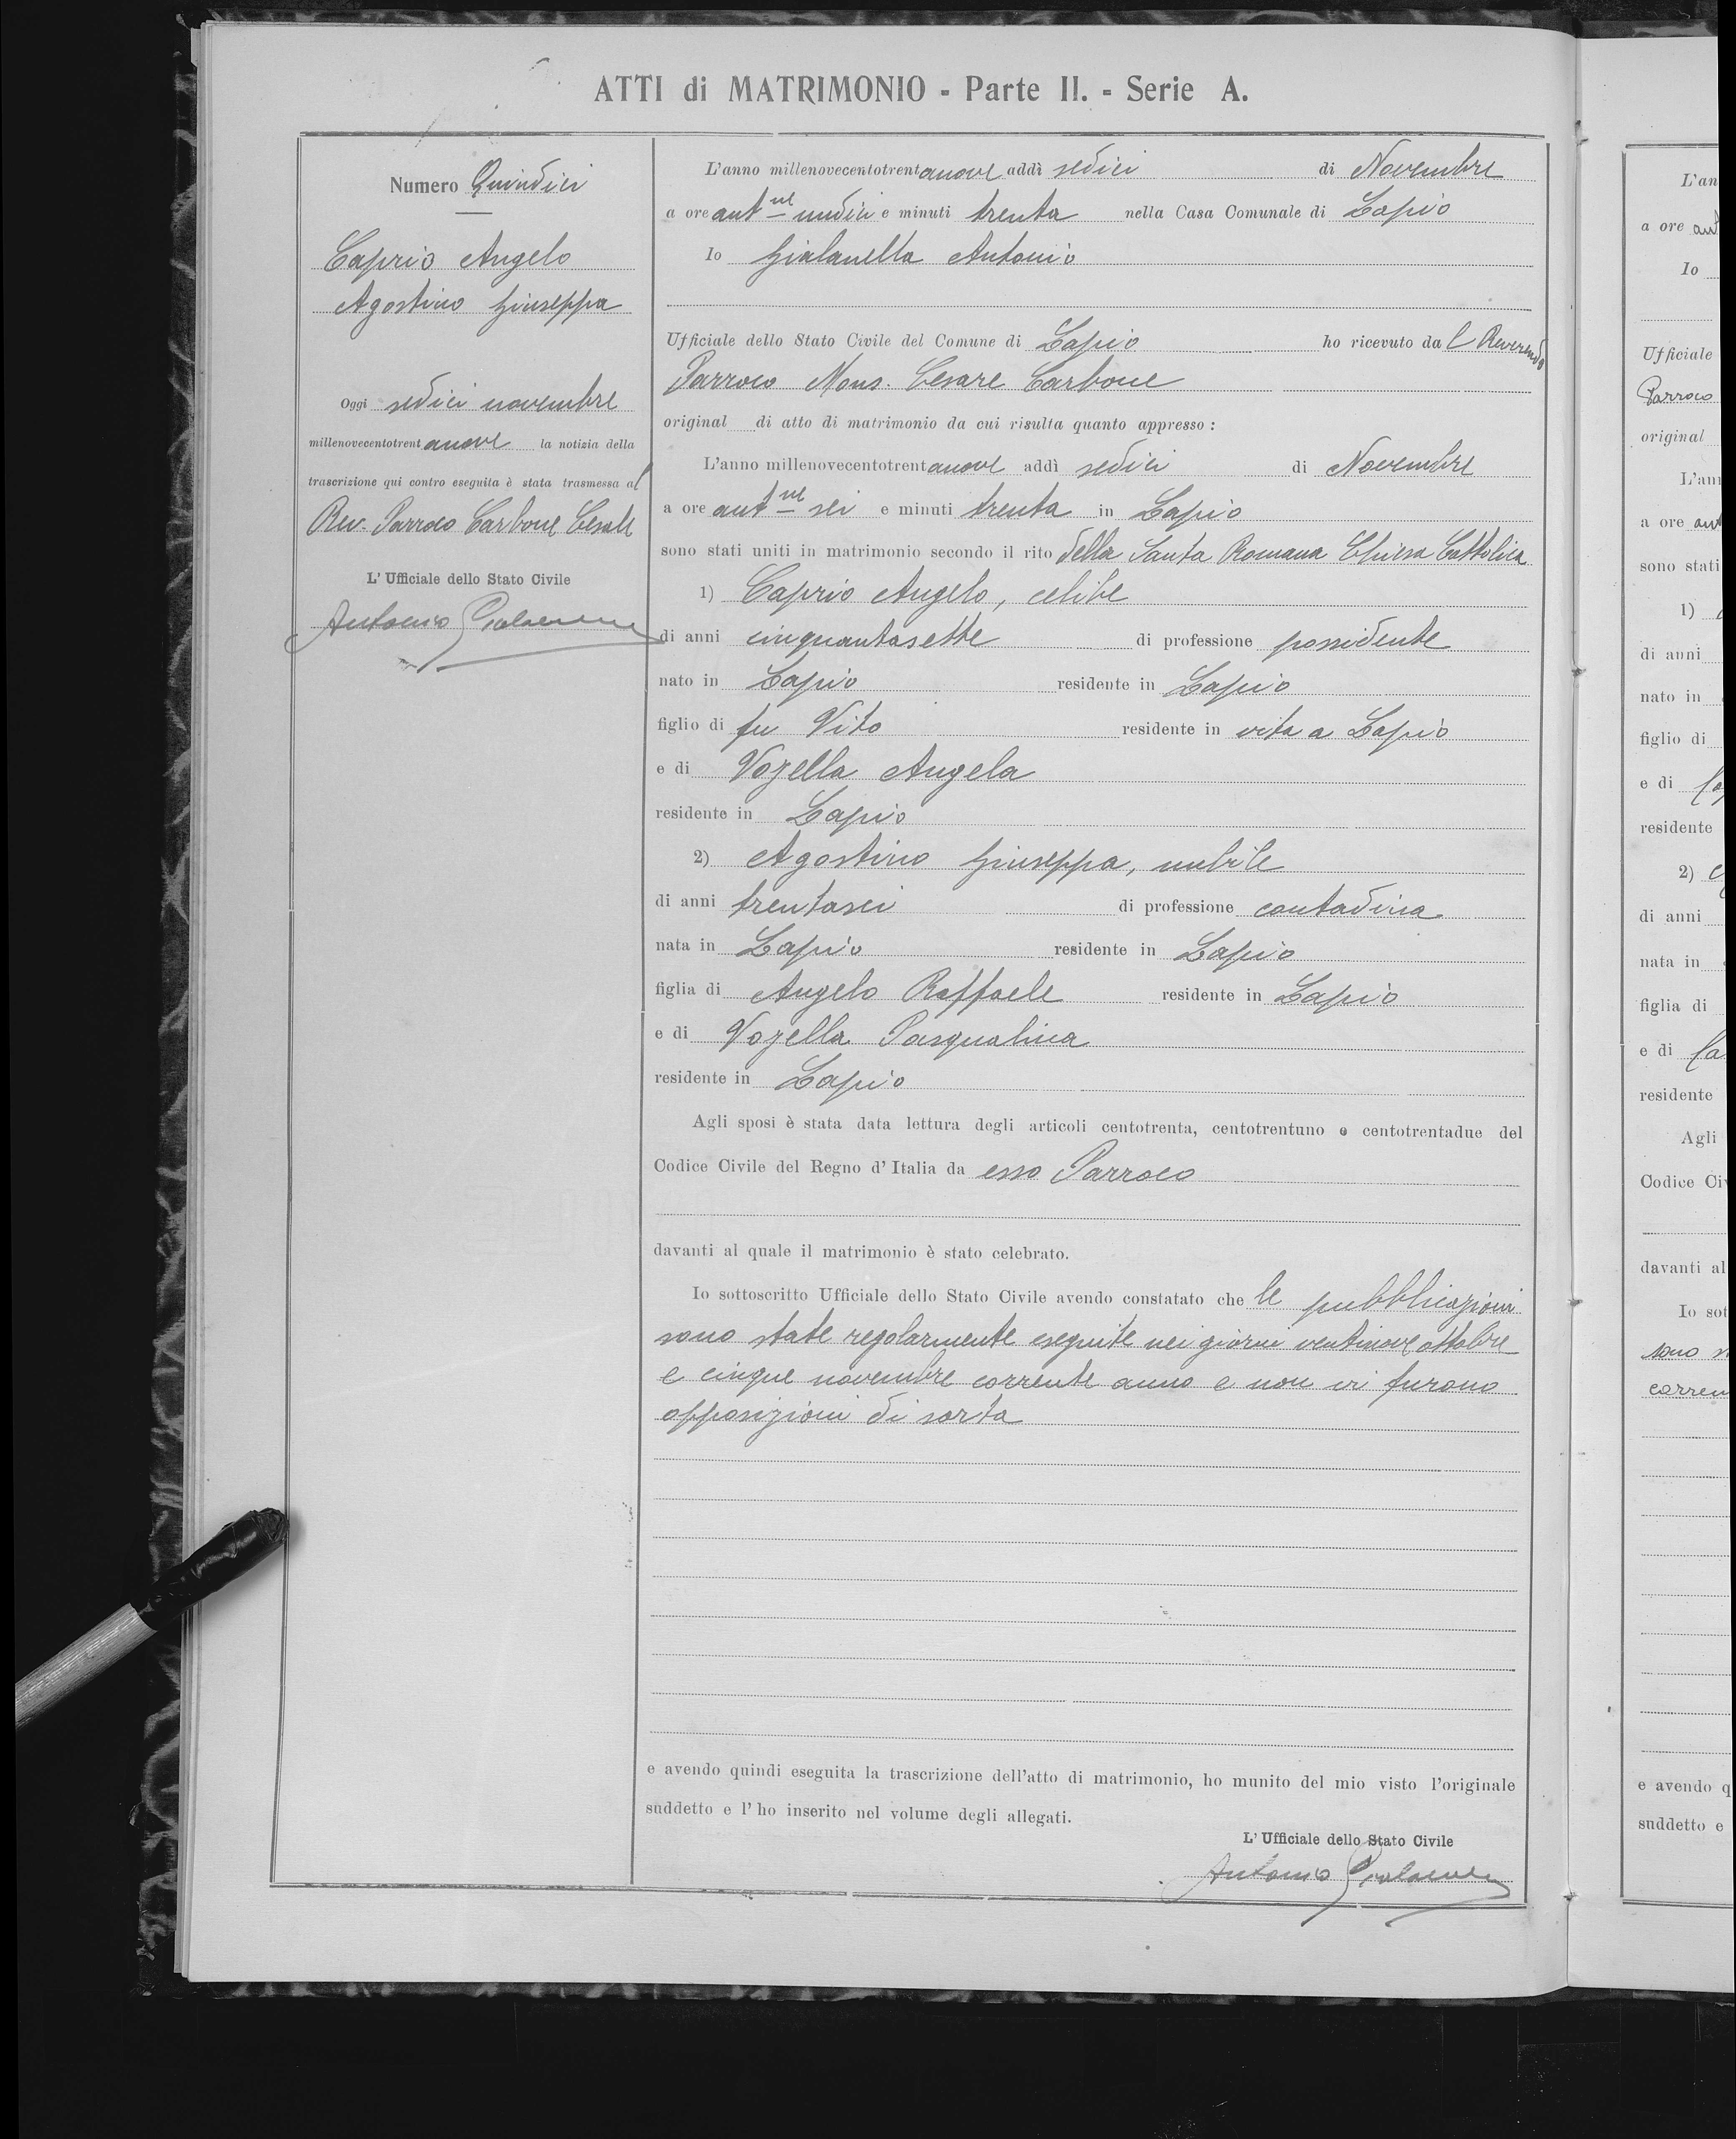 ATTI di MATRIMONIO - Parte II. - Serie A.
Numero Quindici
Caprio Angelo
Agostino Giuseppa
Oggi sedici novembre
millenovecentotrentanove la notizia della
trascrizione qui contro eseguita è stata trasmessa al
Rev. Parroco Carbone Cesare
L'Ufficiale dello Stato Civile
Antonio Gialanella
L'anno millenovecentotrentanove addì sedici di Novembre
a ore ant.ne undici e minuti trenta nella Casa Comunale di Lapio
Io Gialanella Antonio
Ufficiale dello Stato Civile del Comune di Lapio ho ricevuto dal Reverendo
Parroco Mons. Cesare Carbone
original di atto di matrimonio da cui risulta quanto appresso:
L'anno millenovecentotrentanove addì sedici di Novembre
a ore ant.ne sei e minuti trenta in Lapio
sono stati uniti in matrimonio secondo il rito della Santa Romana Chiesa Cattolica
1) Caprio Angelo, celibe
di anni cinquantasette di professione possidente
nato in Lapio residente in Lapio
figlio di fu Vito residente in vita a Lapio
e di Vozella Angela
residente in Lapio
2) Agostino Giuseppa, nubile
di anni trentasei di professione contadina
nata in Lapio residente in Lapio
figlia di Angelo Raffaele residente in Lapio
e di Vozella Pasqualina
residente in Lapio
Agli sposi è stata data lettura degli articoli centotrenta, centotrentuno e centotrentadue del
Codice Civile del Regno d'Italia da esso Parroco
davanti al quale il matrimonio è stato celebrato.
Io sottoscritto Ufficiale dello Stato Civile avendo constatato che le pubblicazioni
sono state regolarmente eseguite nei giorni ventinove ottobre
e cinque novembre corrente anno e non vi furono
opposizioni di sorta
e avendo quindi eseguita la trascrizione dell'atto di matrimonio, ho munito del mio visto l'originale
suddetto e l'ho inserito nel volume degli allegati.
L'Ufficiale dello Stato Civile
Antonio Gialanella
L'an
a ore ant
Io
Ufficiale
Parroco
original
L'ann
a ore ant
sono stati
1)
di anni
nato in
figlio di
e di
residente
2)
di anni
nata in
figlia di
e di
residente
Agli
Codice Civ
davanti al
Io sot
sono
corren
e avendo q
suddetto e